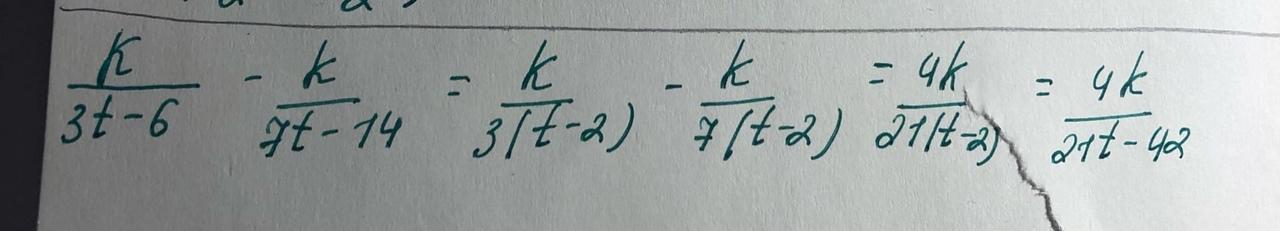 k/(3t-6) - k/(7t-14) = k/(3(t-2)) - k/(7(t-2)) = 4k/(21(t-2)) = 4k/(21t-42)